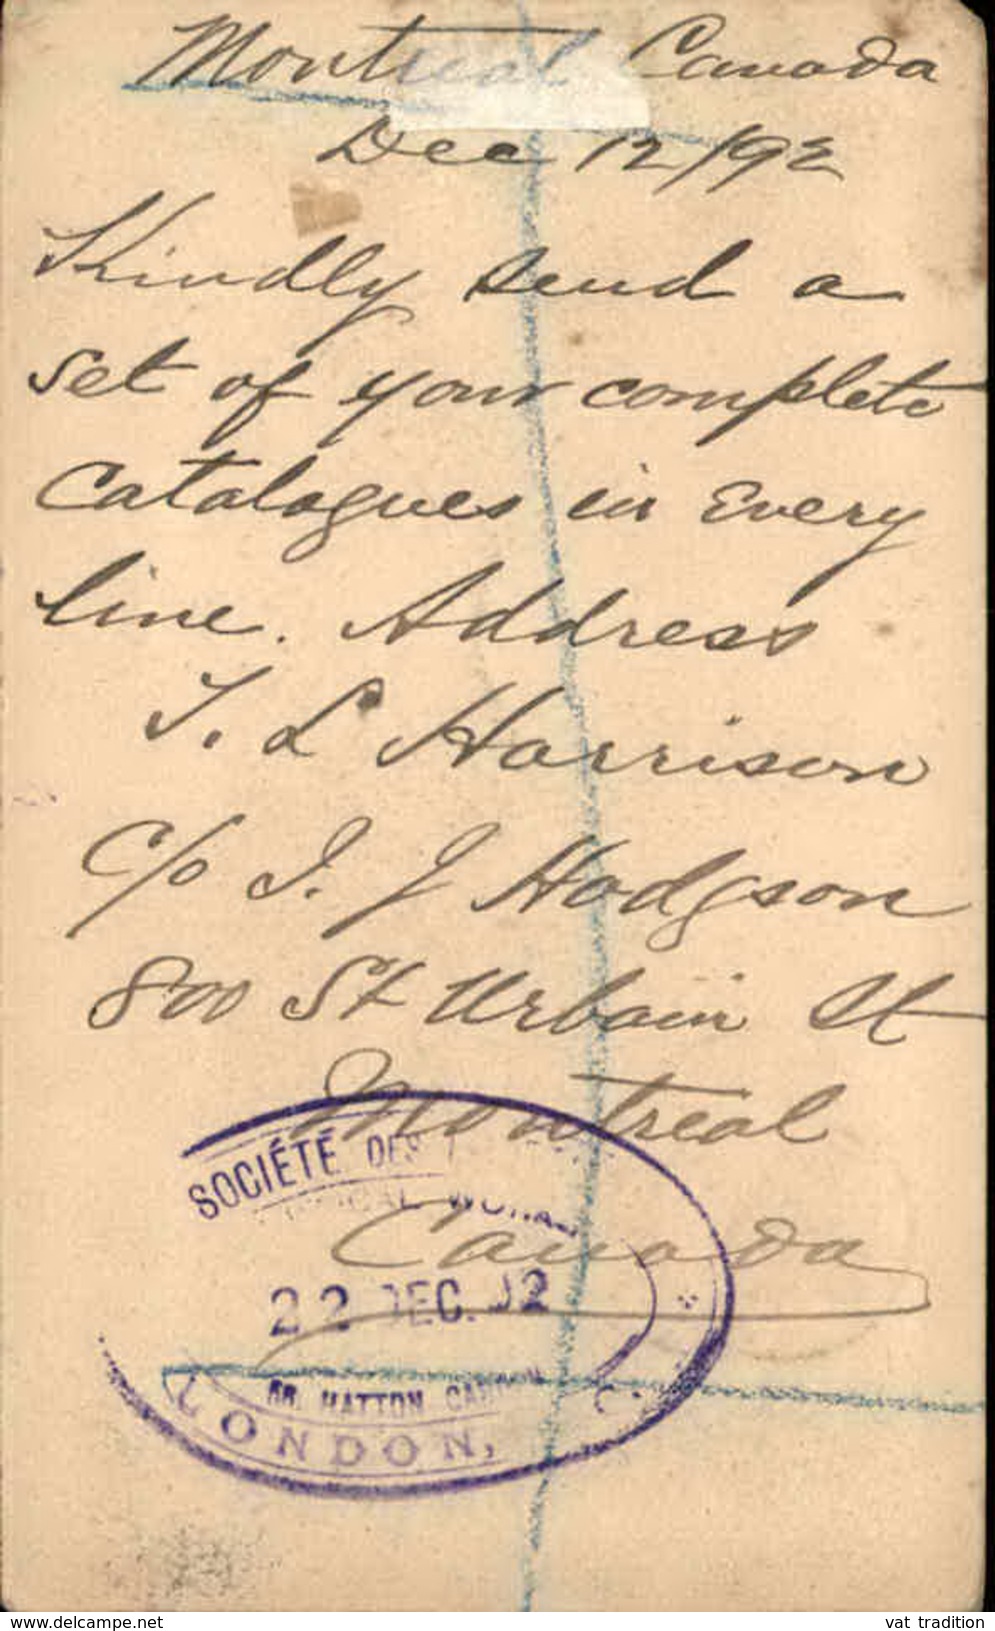 Montreal Canada
Dec 12/92
Kindly send a
set of your complete
catalogues in every
line. Address
T. L Harrison
c/o I. J Hodgson
800 St Urbain St
Montreal
Canada
SOCIÉTÉ DES
22 DEC. 92
HATTON GARDEN
LONDON,
www.delcampe.net
vat tradition